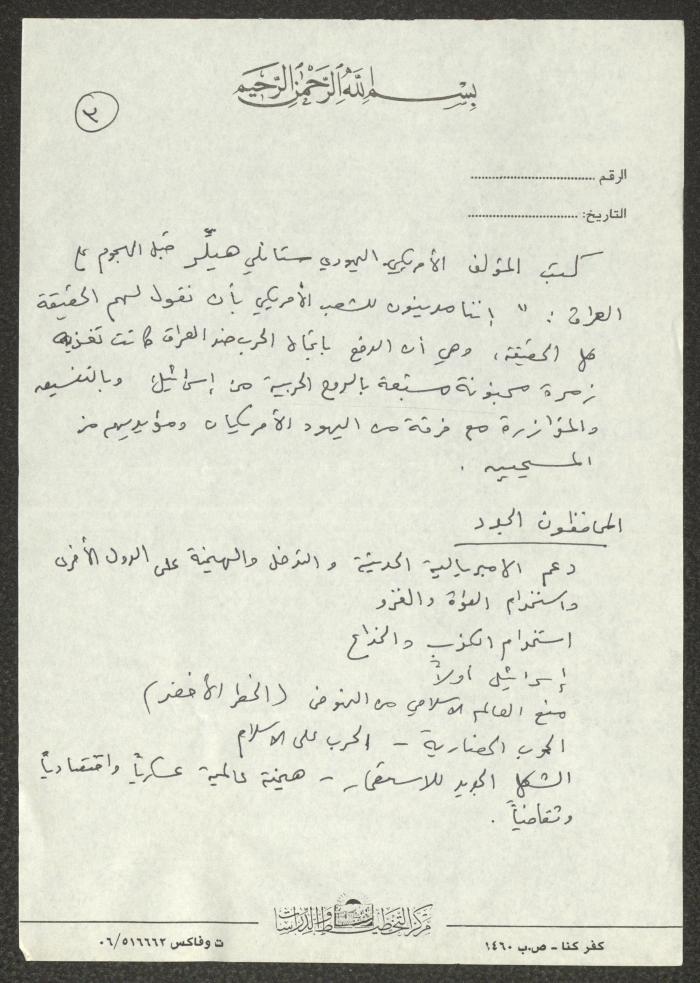 بسم الله الرحمن الرحيم
٣
الرقم ..................................
التاريخ: ..............................
كتب المؤلف الأمريكي اليهودي ستانلي هيلّر قبل الهجوم على
العراق : " إننا مدينون للشعب الأمريكي بأن نقول لهم الحقيقة
كل الحقيقة، وهي أن الدفع باتجاه الحرب ضد العراق كانت تغذيه
زمرة مجنونة مشبعة بالروح الحربية من إسرائيل وبالتنسيق
والمؤازرة مع فرقة من اليهود الأمريكيان ومؤيديهم من
المسيحيين .
المحافظون الجدد
دعم الامبريالية الحديثة والتدخل والهيمنة على الدول الأخرى
واستخدام القوة والغزو
استخدام الكذب والخداع
إسرائيل أولاً
منع العالم الاسلامي من النهوض (الخطر الأخضر)
الحرب الحضارية - الحرب على الاسلام
الشكل الجديد للاستعمار - هيمنة عالمية عسكرياً واقتصادياً
وثقافياً .
مركز التخطيط والدراسات
كفر كنا - ص.ب ١٤٦٠
ت وفاكس ٠٦/٥١٦٦٦٢